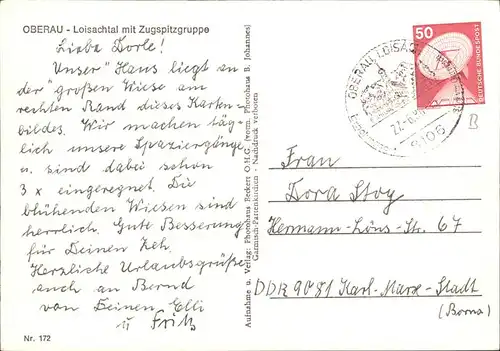 OBERAU - Loisachtal mit Zugspitzgruppe
Liebe Dorle!
Unser "Haus liegt an
der "großen Wiese am
rechten Rand dieses Karten-
bildes. Wir machen täg-
lich unsere Spaziergänge
u. sind dabei schon
3 x eingeregnet. Die
blühenden Wiesen sind
herrlich. Gute Besserung
für Deinen Zeh.
Herzliche Urlaubsgrüße
auch an Bernd
von Deinen Elli
u Fritz
Nr. 172
Aufnahme u. Verlag: Photohaus Beckert O.H.G. (vorm. Photohaus B. Johannes)
Garmisch-Partenkirchen - Nachdruck verboten
50
DEUTSCHE BUNDESPOST
OBERAU, LOISACH
8106
B
Frau
Dora Stoy
Hermann-Löns-Str. 67
DDR 9081 Karl-Marx-Stadt
(Borna)